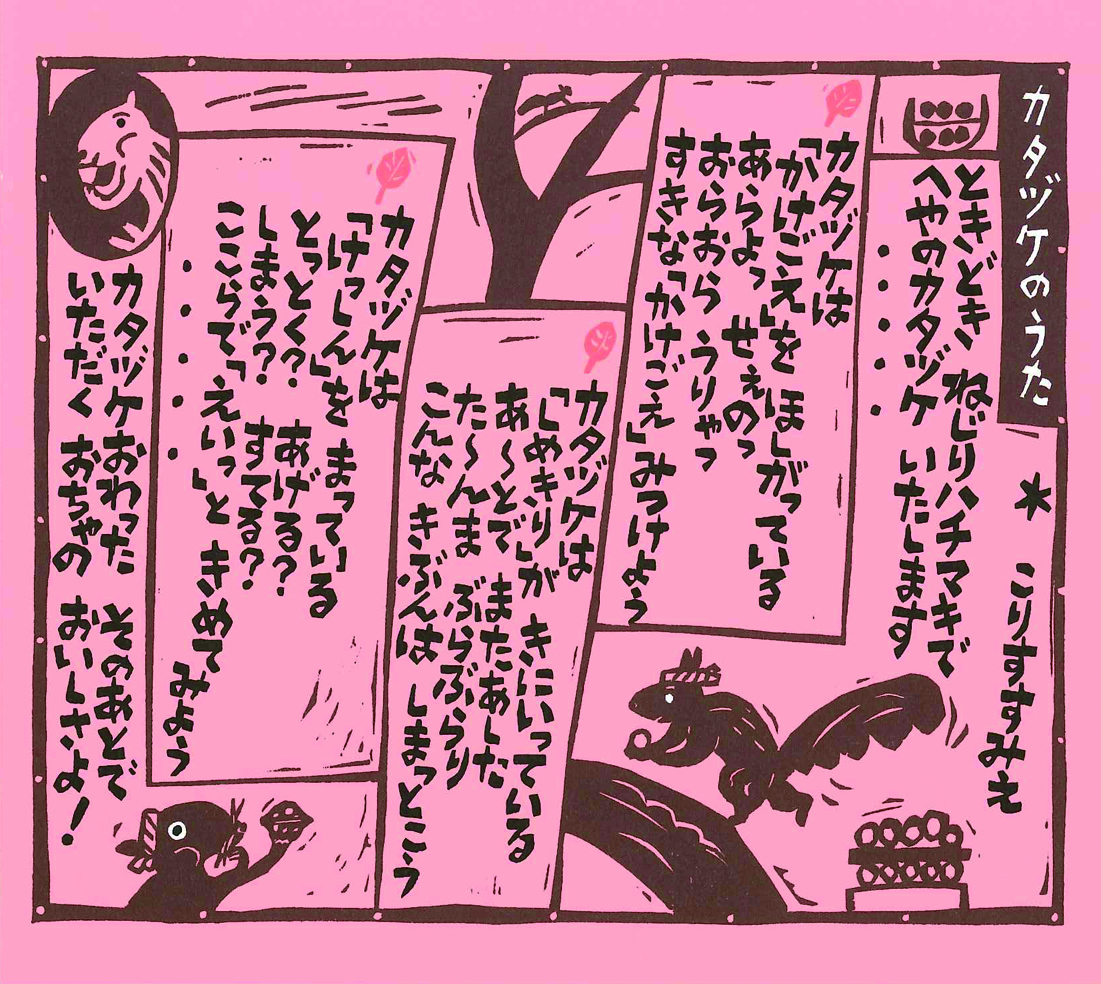 カタヅケのうた
* こりすすみえ
ときどき ねじりハチマキで
へやのカタヅケ いたします
・・・・・
カタヅケは
「かけごえ」を ほしがっている
あらよっ せぇのっ
おらおら うりゃっ
すきな「かけごえ」みつけよう
カタヅケは
「しめきり」が きにいっている
あ〜とで またあした
た〜んま ぶらぶらり
こんな きぶんは しまっとこう
カタヅケは
「けっしん」を まっている
とっとく? あげる?
しまう? すてる?
ここらで「えいっ」と きめて みよう
・・・・・
カタヅケおわった そのあとで
いただく おちゃの おいしさよ!